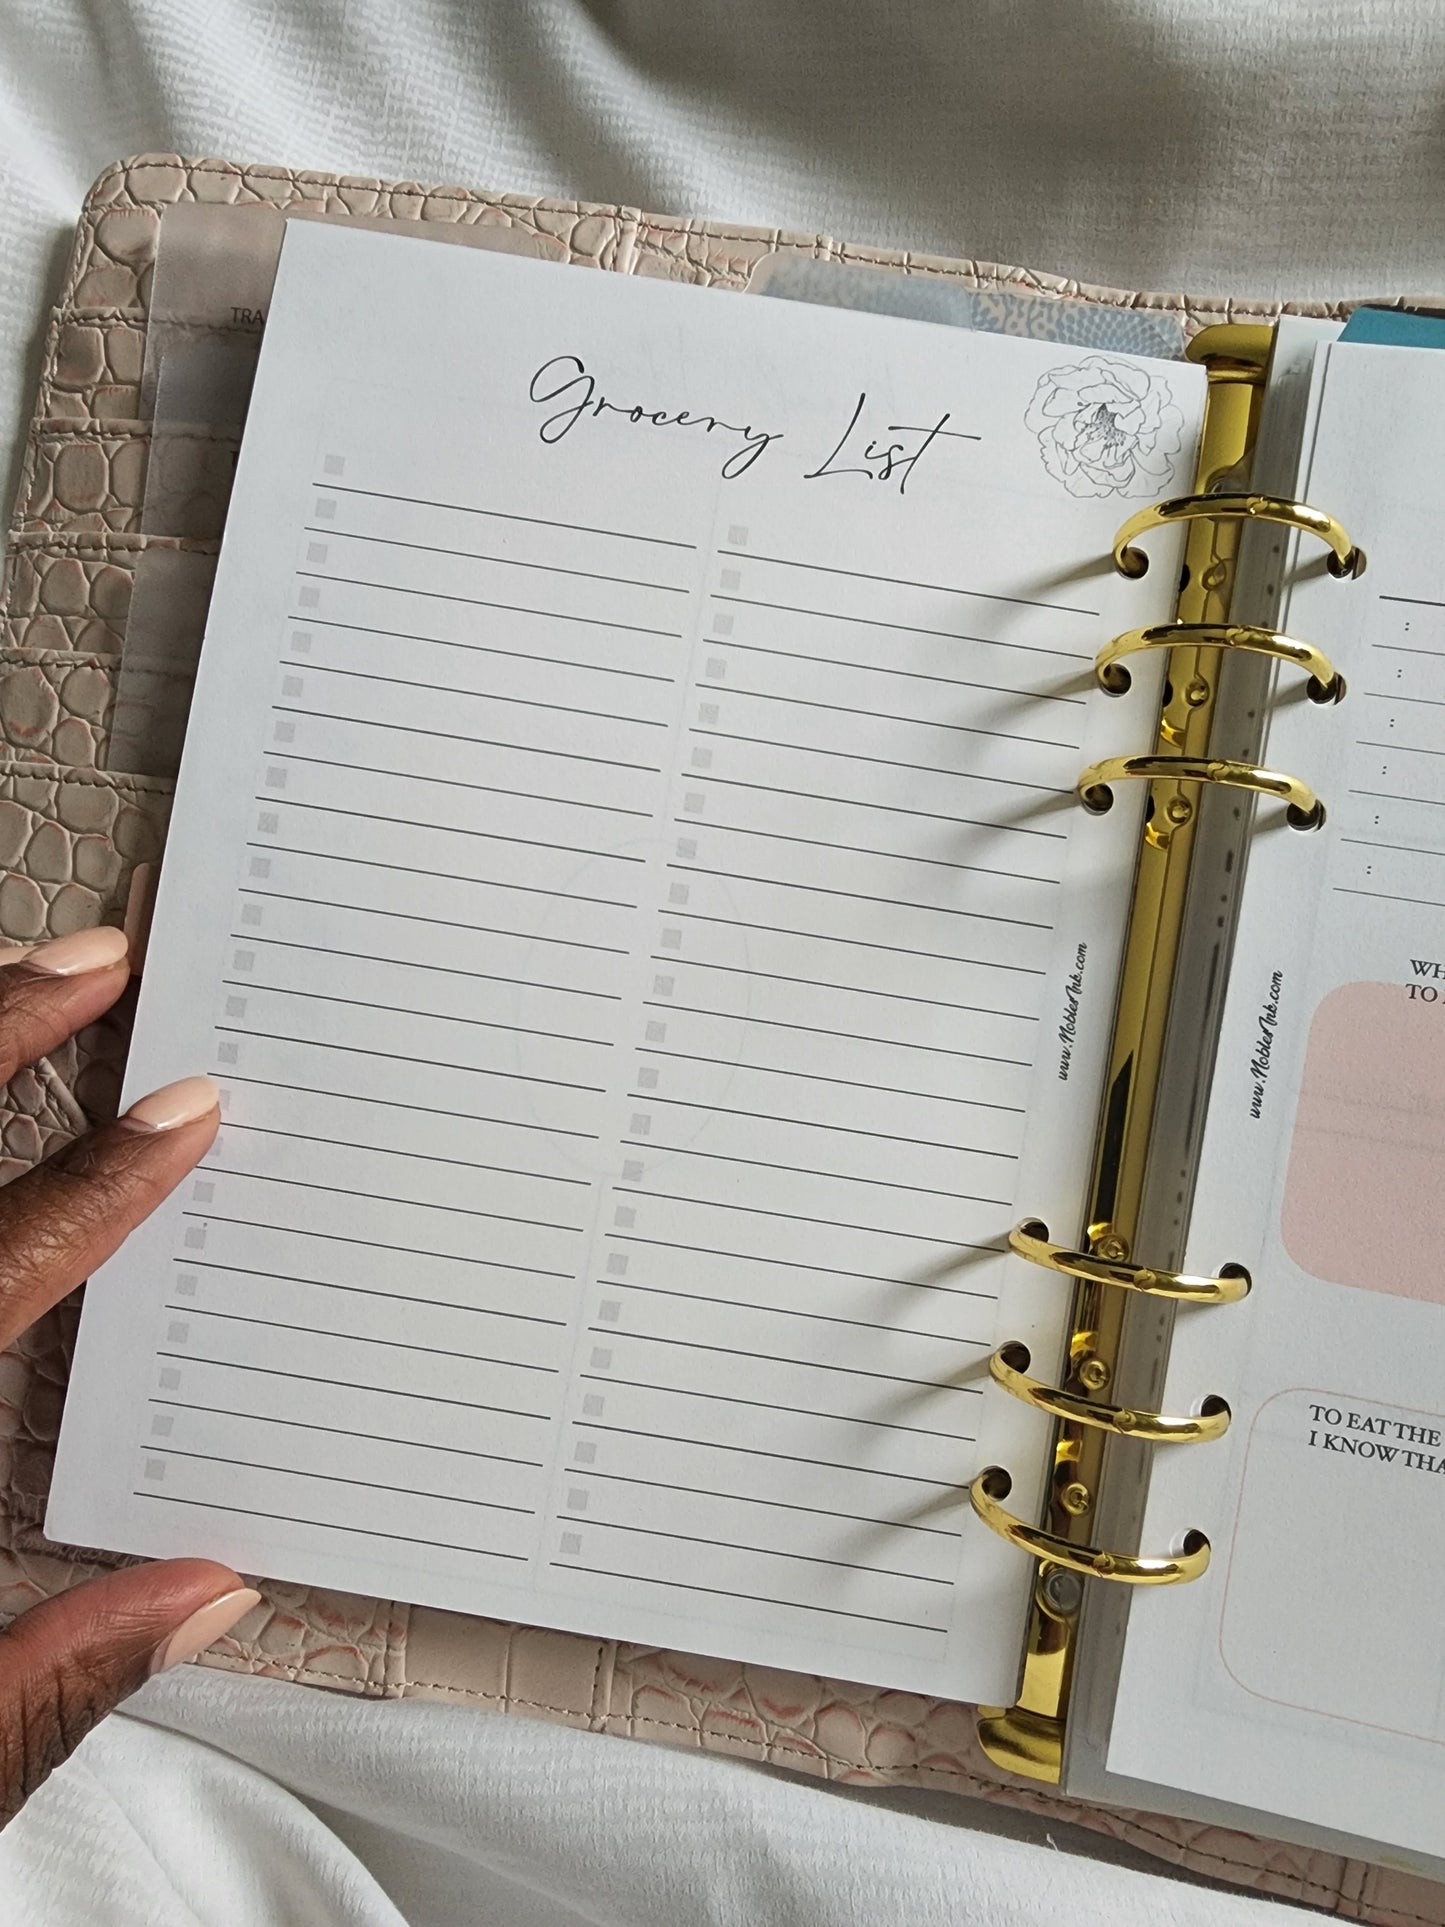 TRA
Grocery List
www.NoblesInk.com
www.NoblesInk.com
WH
TO
TO EAT THE
I KNOW THA